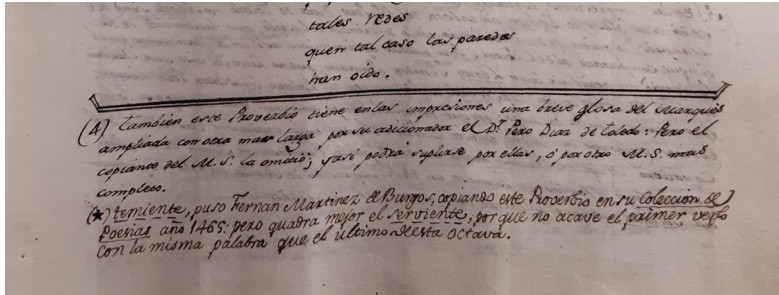 tales redes
quen tal caso las paredes
han oido.
(4) tambien este Proverbio tiene enlas impresiones una breve glosa del Marques
ampliada con otra mas larga por su adicionador el Dr. Pero Diaz de Toledo: Pero el
copiante del M.S. la omitió; yasi podrá suplirse por ellas, ó por otro M.S. mas
completo.
(*) temiente, puso Fernan Martinez de Burgos, copiando este Proverbio en su Coleccion de
Poesias año 1465: pero quadra mejor el serviente; porque no acave el primer verso
con la misma palabra que el ultimo desta octava.